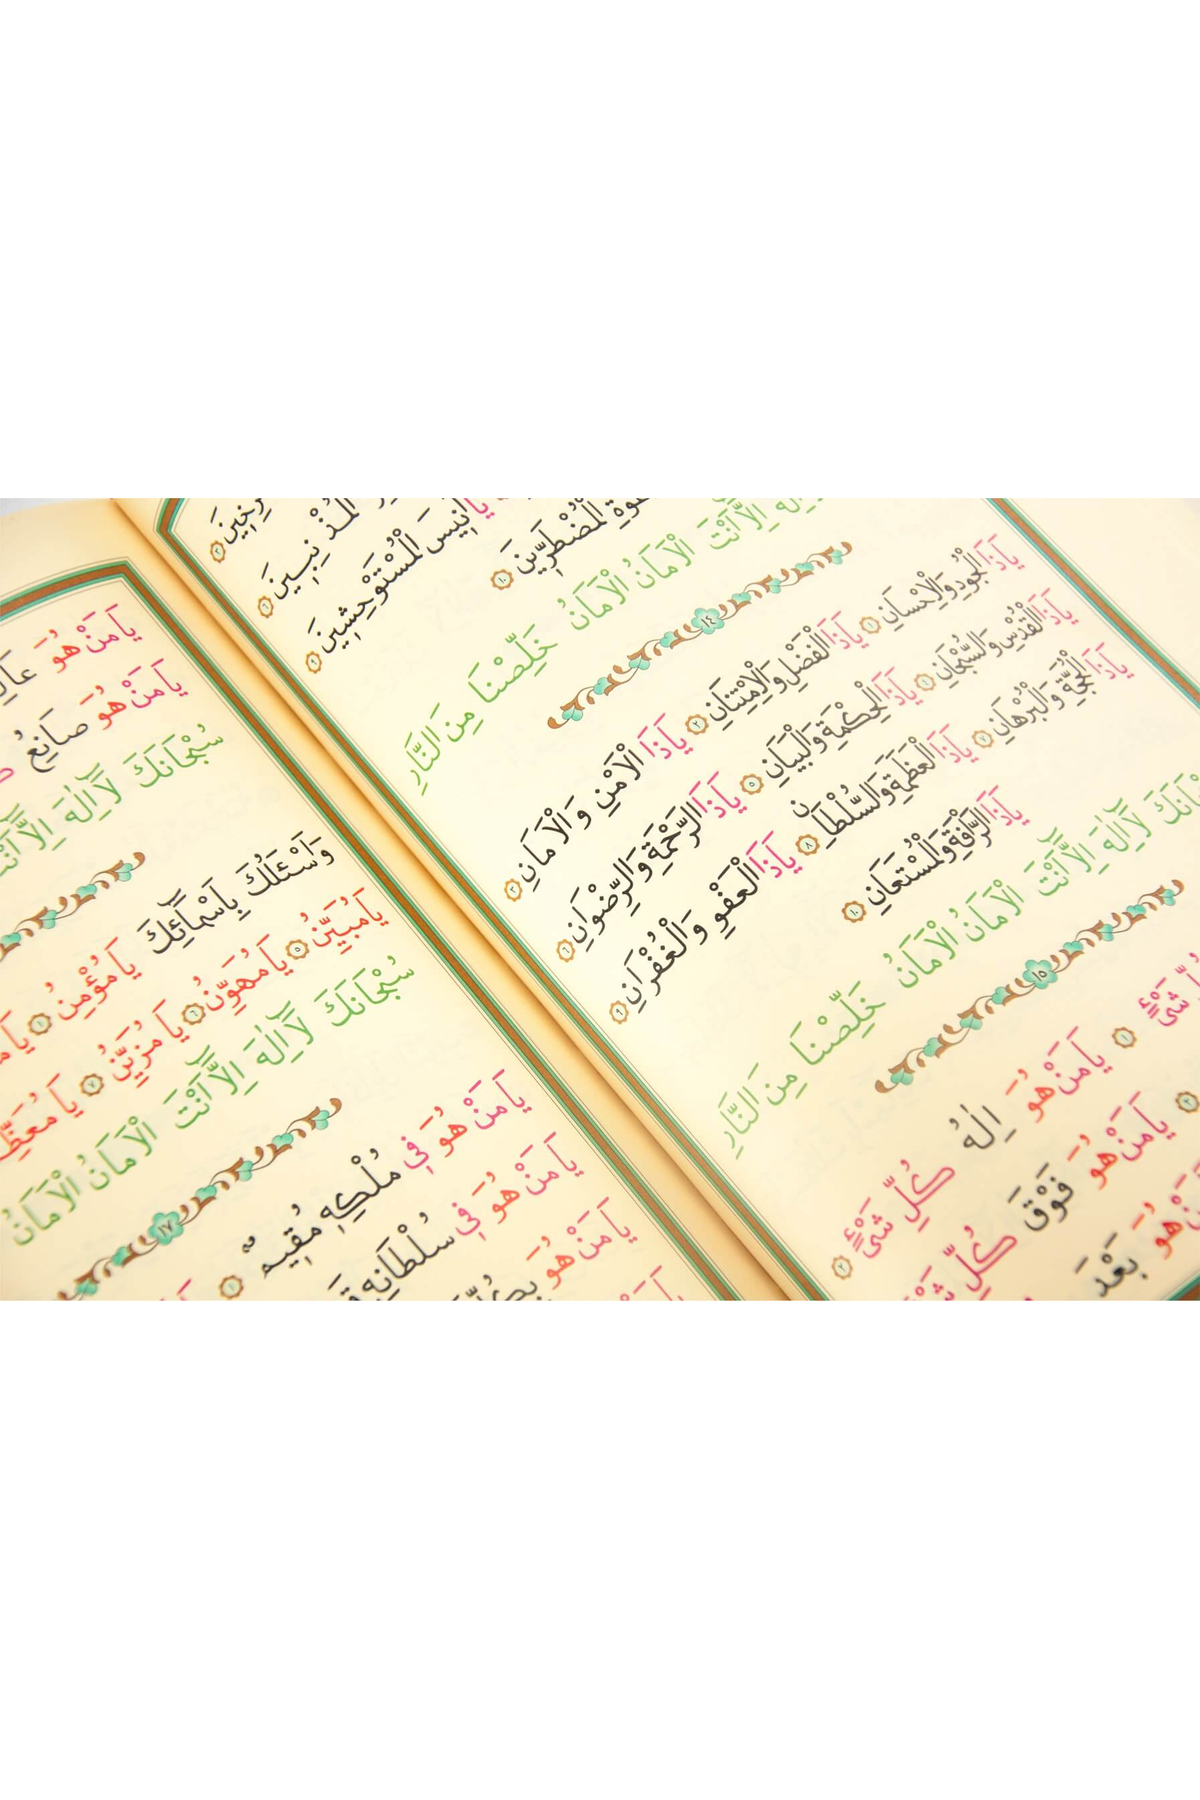 الْمُذْنِبِينَ ٦
يَا اَنِيسَ الْمُسْتَوْحِشِينَ ٩
الْمُضْطَرِّينَ ١٠
اِلَّا اَنْتَ الْاَمَانُ الْاَمَانُ خَلِّصْنَا مِنَ النَّارِ
١٤
يَاذَا الْجُودِ وَالْاِحْسَانِ ١ يَاذَا الْفَضْلِ وَالْاِمْتِنَانِ ٢ يَاذَا الْاَمْنِ وَالْاَمَانِ ٣
يَاذَا الْقُدْسِ وَالسُّبْحَانِ ٤ يَاذَا الْحِكْمَةِ وَالْبَيَانِ ٥ يَاذَا الرَّحْمَةِ وَالرِّضْوَانِ ٦
يَاذَا الْحُجَّةِ وَالْبُرْهَانِ ٧ يَاذَا الْعَظَمَةِ وَالسُّلْطَانِ ٨ يَاذَا الْعَفْوِ وَالْغُفْرَانِ ٩
يَاذَا الرَّأْفَةِ وَالْمُسْتَعَانِ ١٠
سُبْحَانَكَ لَآ اِلٰهَ اِلَّا اَنْتَ الْاَمَانُ الْاَمَانُ خَلِّصْنَا مِنَ النَّارِ
١٥
كُلِّ شَيْءٍ ١ يَا مَنْ هُوَ اِلٰهُ كُلِّ شَيْءٍ ٢
يَا مَنْ هُوَ فَوْقَ كُلِّ شَيْءٍ
هُوَ بَعْدَ
يَا مَنْ هُوَ
يَا مَنْ هُوَ صَانِعُ
سُبْحَانَكَ لَآ اِلٰهَ اِلَّا اَنْتَ
وَاَسْئَلُكَ بِاَسْمَآئِكَ يَا مُؤْمِنُ ١
يَا مُبَيِّنُ ٥ يَا مُهَوِّنُ ٦ يَا مُزَيِّنُ ٧ يَا مُعَظِّمُ
سُبْحَانَكَ لَآ اِلٰهَ اِلَّا اَنْتَ الْاَمَانُ الْاَمَانُ
١٧
يَا مَنْ هُوَ فِي مُلْكِهِ مُقِيمٌ ١
يَا مَنْ هُوَ فِي سُلْطَانِهِ
يَا مَنْ هُوَ بِكُلِّ